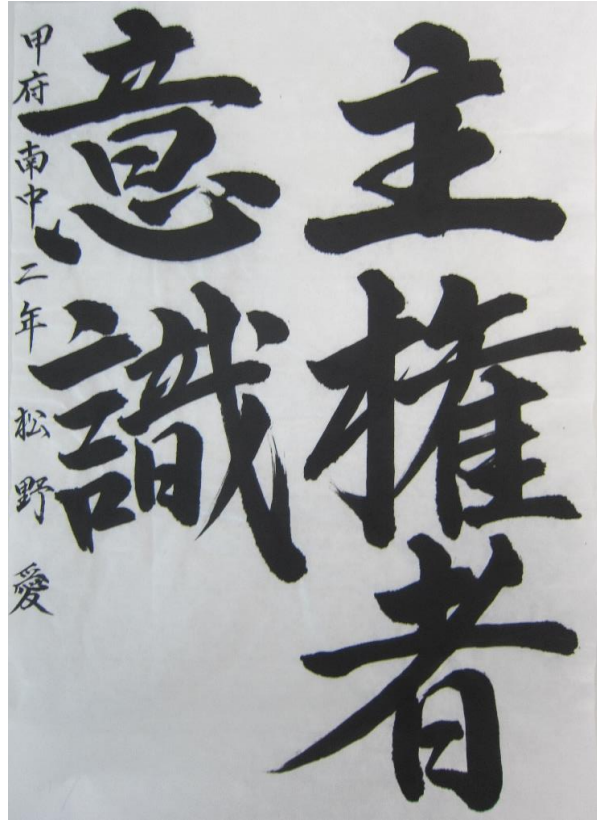 主権者
意識
甲府南中二年 松野 愛